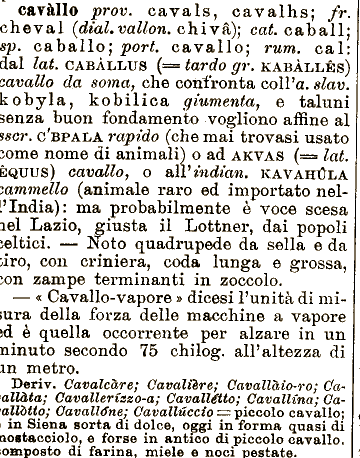 cavàllo prov. cavals, cavalhs; fr.
cheval (dial. vallon. chivâ); cat. caball;
sp. caballo; port. cavallo; rum. cal:
dal lat. CABÀLLUS (= tardo gr. KABÀLLÊS)
cavallo da soma, che confronta coll'a. slav.
kobyla, kobilica giumenta, e taluni
senza buon fondamento vogliono affine al
sscr. C'BPALA rapido (che mai trovasi usato
come nome di animali) o ad AKVAS (= lat.
ÈQUUS) cavallo, o all'indian. KAVAHÛLA
cammello (animale raro ed importato nel-
l'India): ma probabilmente è voce scesa
nel Lazio, giusta il Lottner, dai popoli
celtici. — Noto quadrupede da sella e da
tiro, con criniera, coda lunga e grossa,
con zampe terminanti in zoccolo.
— « Cavallo-vapore » dicesi l'unità di mi-
sura della forza delle macchine a vapore
ed è quella occorrente per alzare in un
minuto secondo 75 chilog. all'altezza di
un metro.
Deriv. Cavalcàre; Cavalière; Cavallàio-ro; Ca-
vallàta; Cavallerízzo-a; Cavallétto; Cavallína; Ca-
vallòtto; Cavallóne; Cavallúccio = piccolo cavallo;
e in Siena sorta di dolce, oggi in forma quasi di
mostacciolo, e forse in antico di piccolo cavallo,
composto di farina, miele e noci pestate.